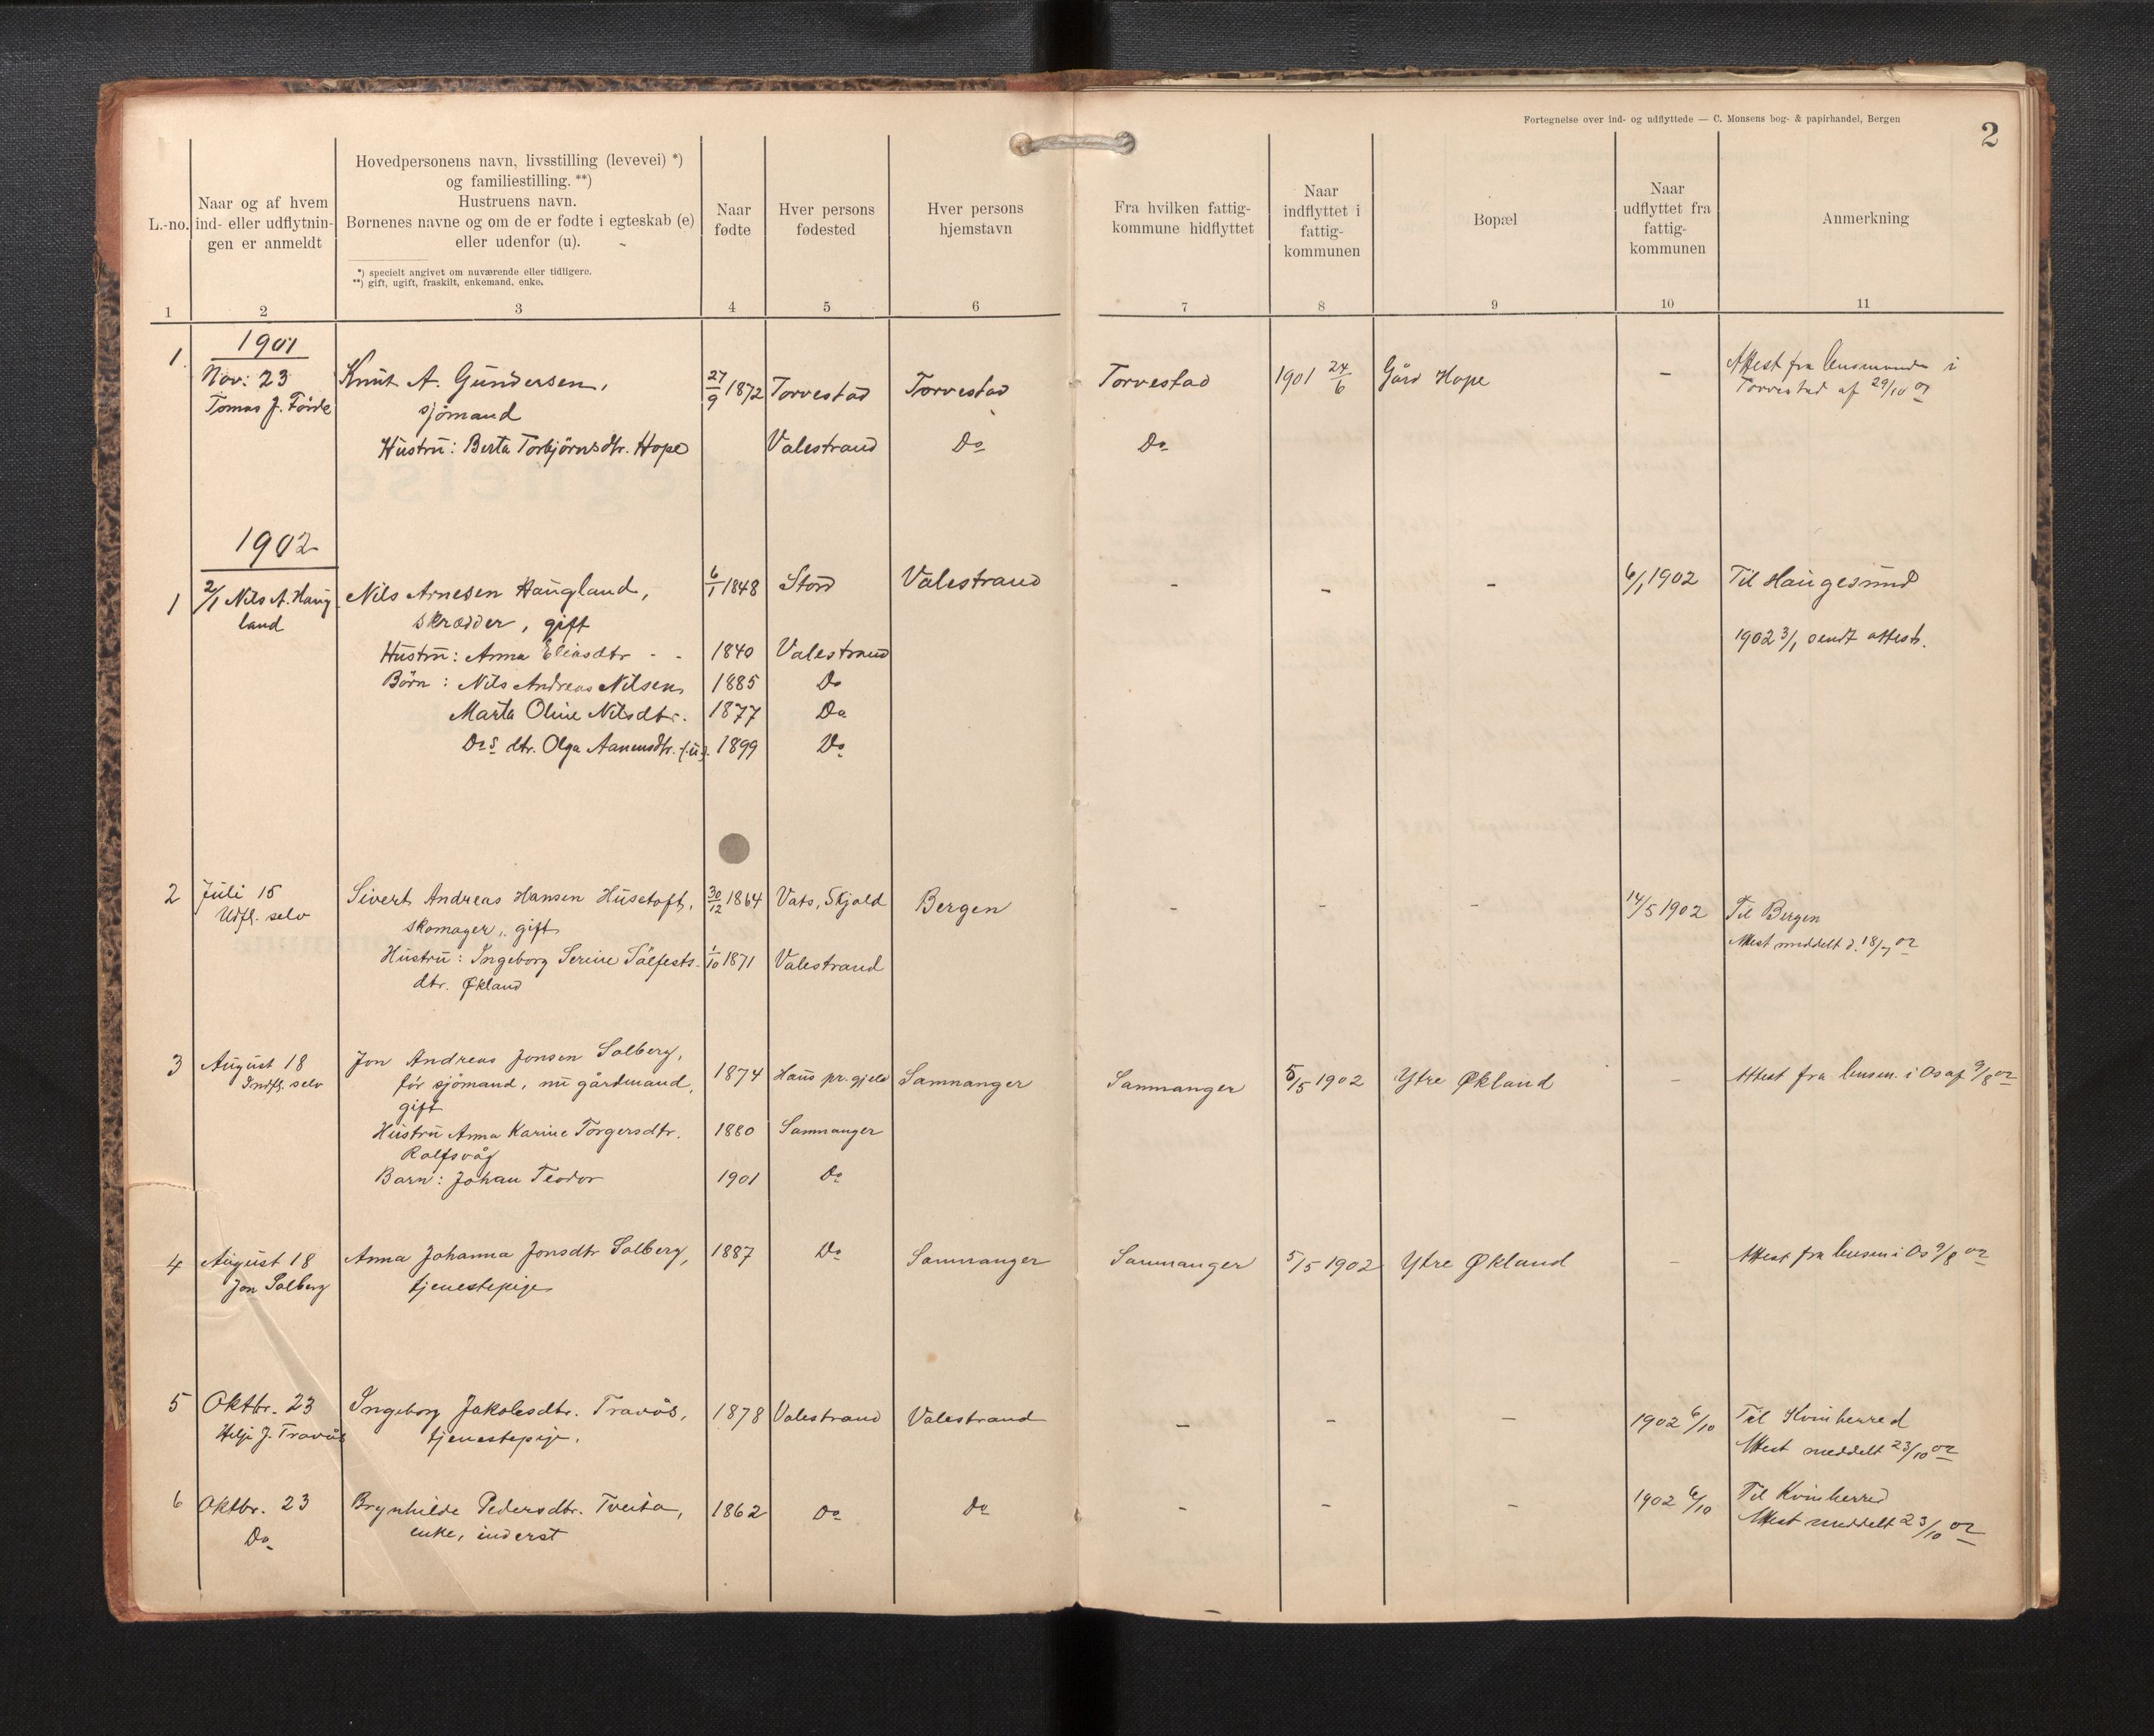 Fortegnelse over ind- og udflyttede — C. Monsens bog- & papirhandel, Bergen
2
L.-no.
Naar og af hvem
ind- eller udflytnin-
gen er anmeldt
Hovedpersonens navn, livsstilling (levevei) *)
og familiestilling. **)
Hustruens navn.
Børnenes navne og om de er fødte i egteskab (e)
eller udenfor (u).
*) specielt angivet om nuværende eller tidligere.
**) gift, ugift, fraskilt, enkemand, enke.
Naar
fødte
Hver persons
fødested
Hver persons
hjemstavn
Fra hvilken fattig-
kommune hidflyttet
Naar
indflyttet i
fattig-
kommunen
Bopæl
Naar
udflyttet fra
fattig-
kommunen
Anmerkning
1 2 3 4 5 6 7 8 9 10 11
1901
1 Nov: 23 Knut A. Gundersen, 27/9 1872 Torvestad Torvestad Torvestad 1901 24/6 Gård Hope – Attest fra lensmanden i
Tomas J. Förde sjömand Torvestad af 29/10 01
Hustru: Berta Torbjörnsdtr. Hope Valestrand Do Do
1902
1 2/1 Nils A. Haug- Nils Arnesen Haugland, 6/1 1848 Stord Valestrand – – – 6/1 1902 Til Haugesund
land skrædder, gift
1902 3/1 sendt attest.
Hustru: Anna Eliasdtr - - 1840 Valestrand
Börn: Nils Andreas Nilsen 1885 Do
Marta Oline Nilsdtr. 1877 Do
Do s dtr. Olga Aanensdtr. (u). 1899 Do
2 Juli 15 Sivert Andreas Hansen Husetoft, 30/12 1864 Vats, Skjold Bergen – – – 14/5 1902 Til Bergen
Udfl. selv skomager, gift Attest meddelt d. 18/7 02
Hustru: Ingeborg Serine Sälfests- 1/10 1871 Valestrand
dtr. Økland
3 August 18 Jon Andreas Jonsen Solberg, 1874 Haus pr.gjeld Samnanger Samnanger 5/5 1902 Ytre Økland – Attest fra lensm. i Os af 9/8 02
Indfl. selv för sjömand, nu gårdmand,
gift
Hustru Anna Karine Torgersdtr. 1880 Samnanger
Rolfsvåg
Barn: Johan Teodor 1901 Do
4 August 18 Anna Johanna Jonsdtr Solberg, 1887 Do Samnanger Samnanger 5/5 1902 Ytre Økland – Attest fra lensm i Os 9/8 02
Jon Solberg tjenestepige
5 Oktbr. 23 Ingeborg Jakobsdtr. Traväs, 1878 Valestrand Valestrand – – – 1902 6/10 Til Kvinherred
Helje J. Traväs tjenestepige. Attest meddelt 23/10 02
6 Oktbr. 23 Brynhilde Pedersdtr. Tveita, 1862 Do Do – – – 1902 6/10 Til Kvinherred
Do enke, inderst Attest meddelt 23/10 02